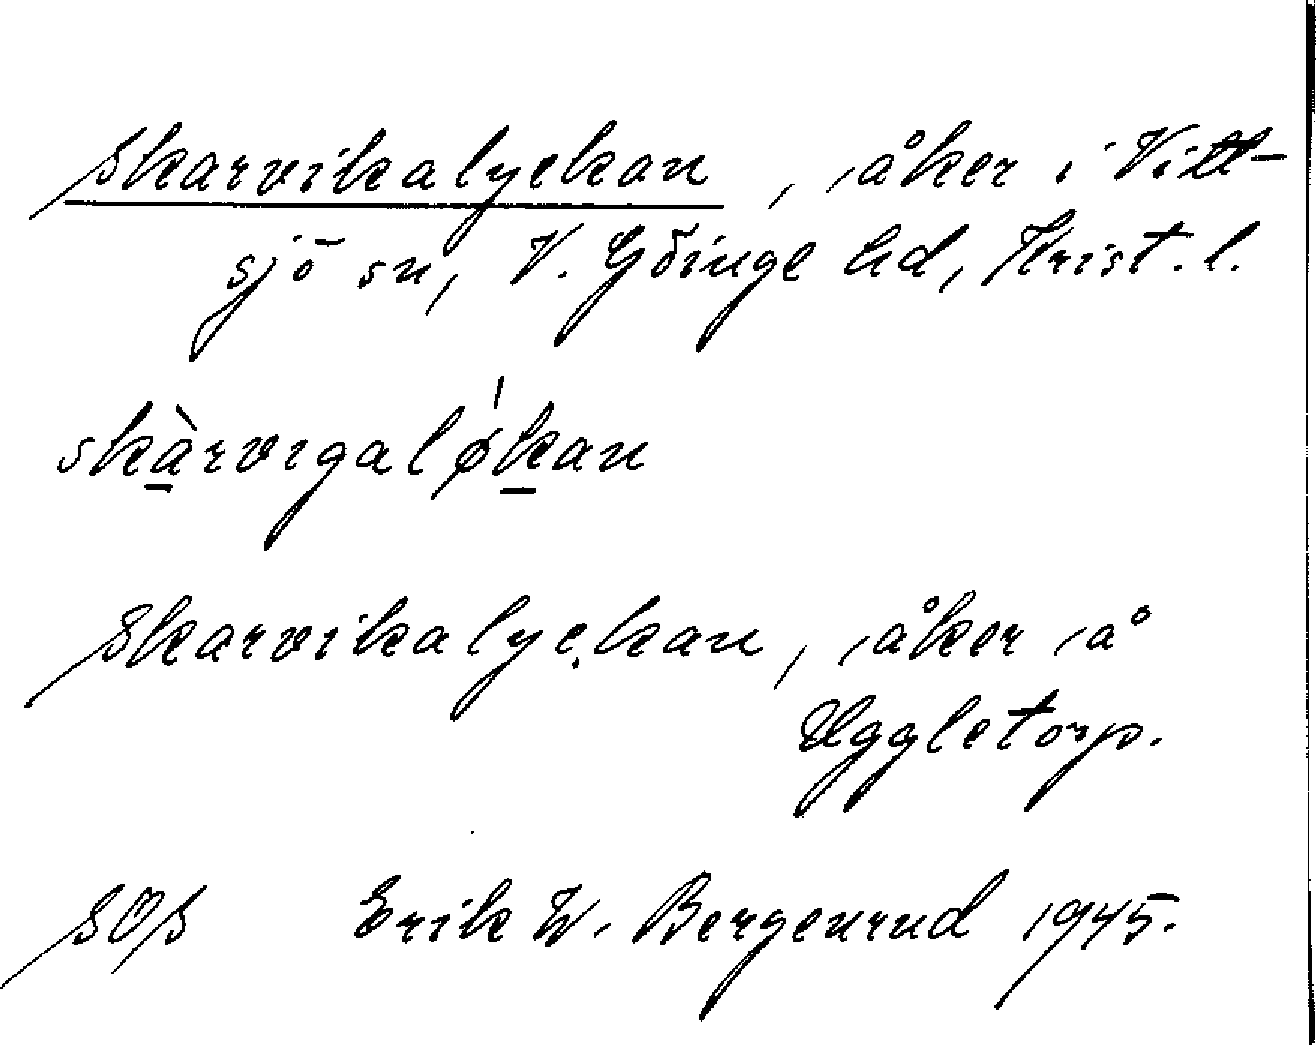 Skarvikalyckan, åker i Vitt-
sjö sn, V. Göinge hd, Krist. l.
skàrvigaløkan
Skarvikalyckan, åker å
Uggletorp.
SOS Erik W. Bergenrud 1945.